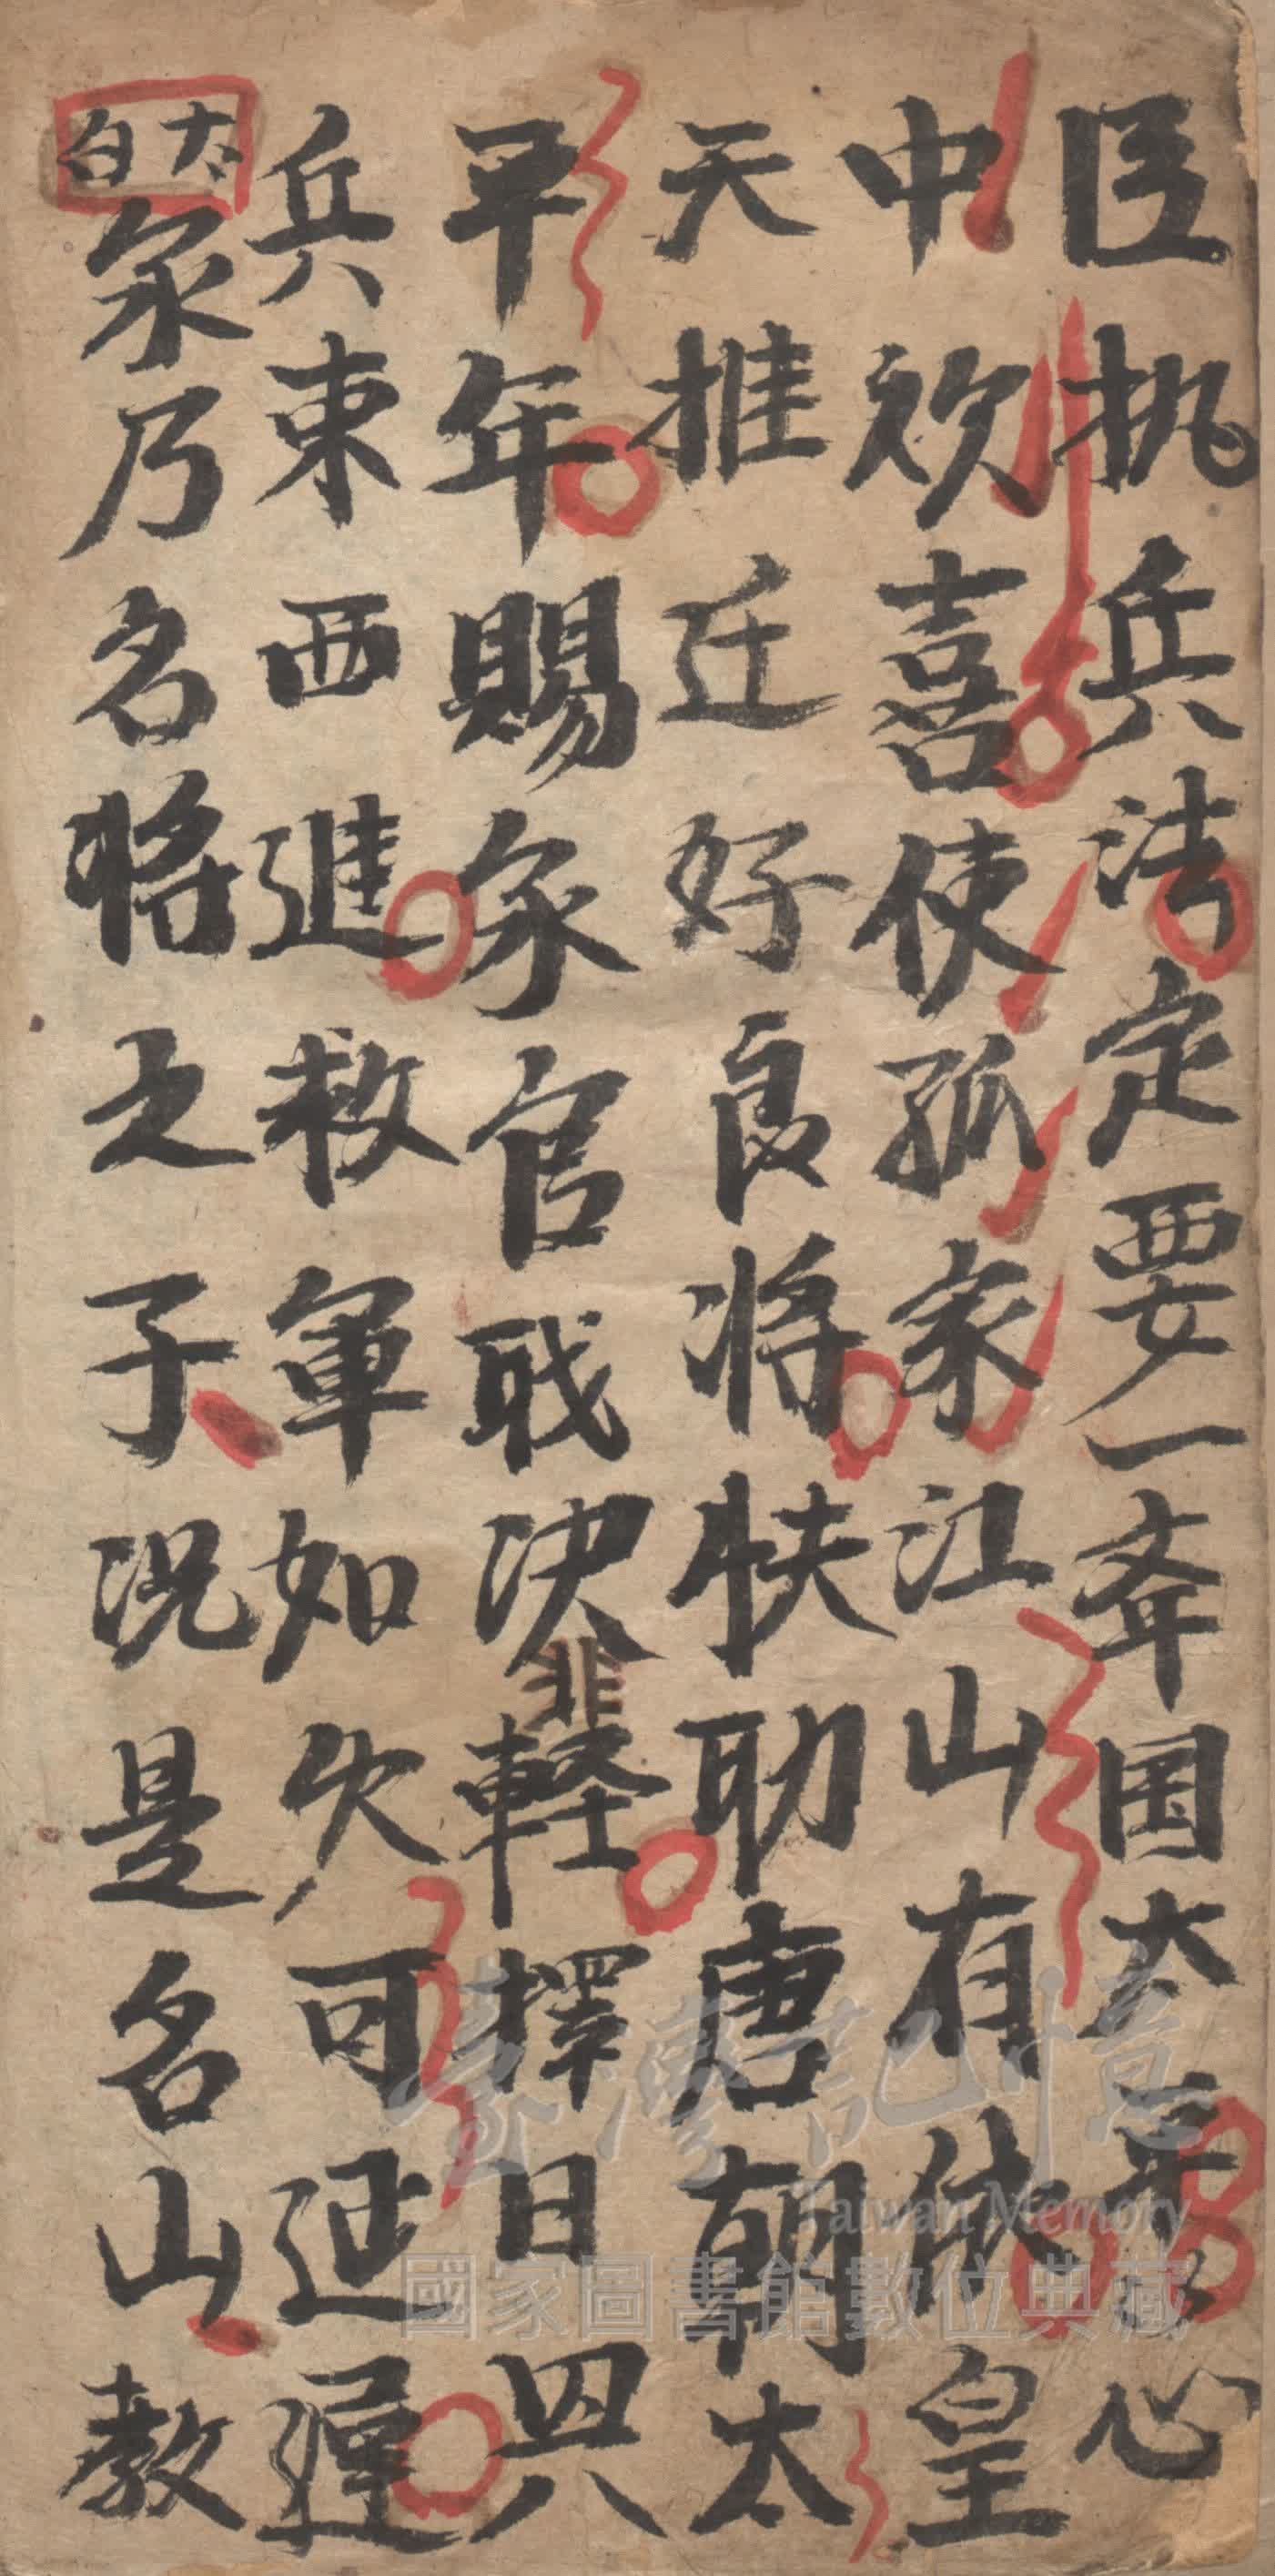 臣执兵法定要一夆国太平心
中欢喜使孤家江山有依皇
天推迁好良将扶助唐朝太
平年賜家官戝决非輕擇日兴
兵東西進救軍如火可延遲
太白
家乃名将之子况是名山教
臺灣記憶
Taiwan Memory
國家圖書館數位典藏